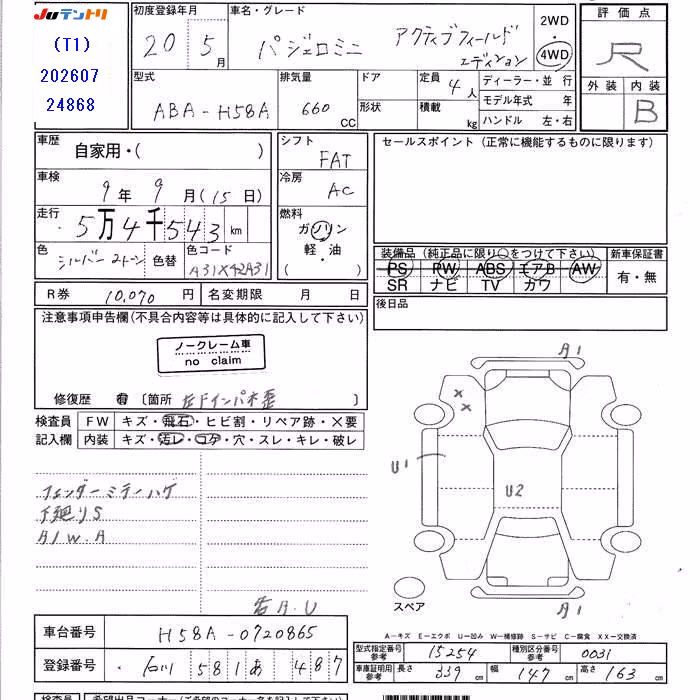 JUテントリ
(T1)
202607
24868
初度登録年月
20 5月
車名・グレード
パジェロミニ
アクティブフィールド
エディション
2WD
・
4WD
評価点
R
外装 内装
B
型式
ABA-H58A
排気量
660
CC
ドア
形状
定員
4人
積載
kg
ディーラー・並行
モデル年式 年
ハンドル 左・右
車歴
自家用・( )
車検
9年9月(15日)
走行
5万4千543km
色
シルバー2トーン
色替
色コード
A31X42A31
シフト
FAT
冷房
AC
燃料
ガソリン
・
軽・油
( )
セールスポイント(正常に機能するものに限ります)
装備品(純正品に限り○をつけて下さい)
PS PW ABS エアB AW
SR ナビ TV カワ
新車保証書
有・無
R券 10,070円
名変期限 月 日
後日品
注意事項申告欄(不具合内容等は具体的に記入して下さい)
ノークレーム車
no claim
修復歴 有 [箇所 左Fインパネ歪 ]
検査員
記入欄
FW キズ・飛石・ヒビ割・リペア跡・X要
内装 キズ・汚レ・コゲ・穴・スレ・キレ・破レ
フェンダーミラーハゲ
下廻りS
A/W.A
若A.U
A1
X X
U1
U2
A1
スペア
A−キズ E−エクボ U−凹み W−補修跡 S−サビ C−腐食 XX−交換済
車台番号
H58A-0720865
登録番号
石川 581 あ 487
型式指定番号
参考
15254
種別区分番号
参考
0031
車庫証明用
参考
長さ 339cm 幅 147cm 高さ 163cm
検査員
希望出品コーナー(ご希望のコーナー名を記入して下さい)